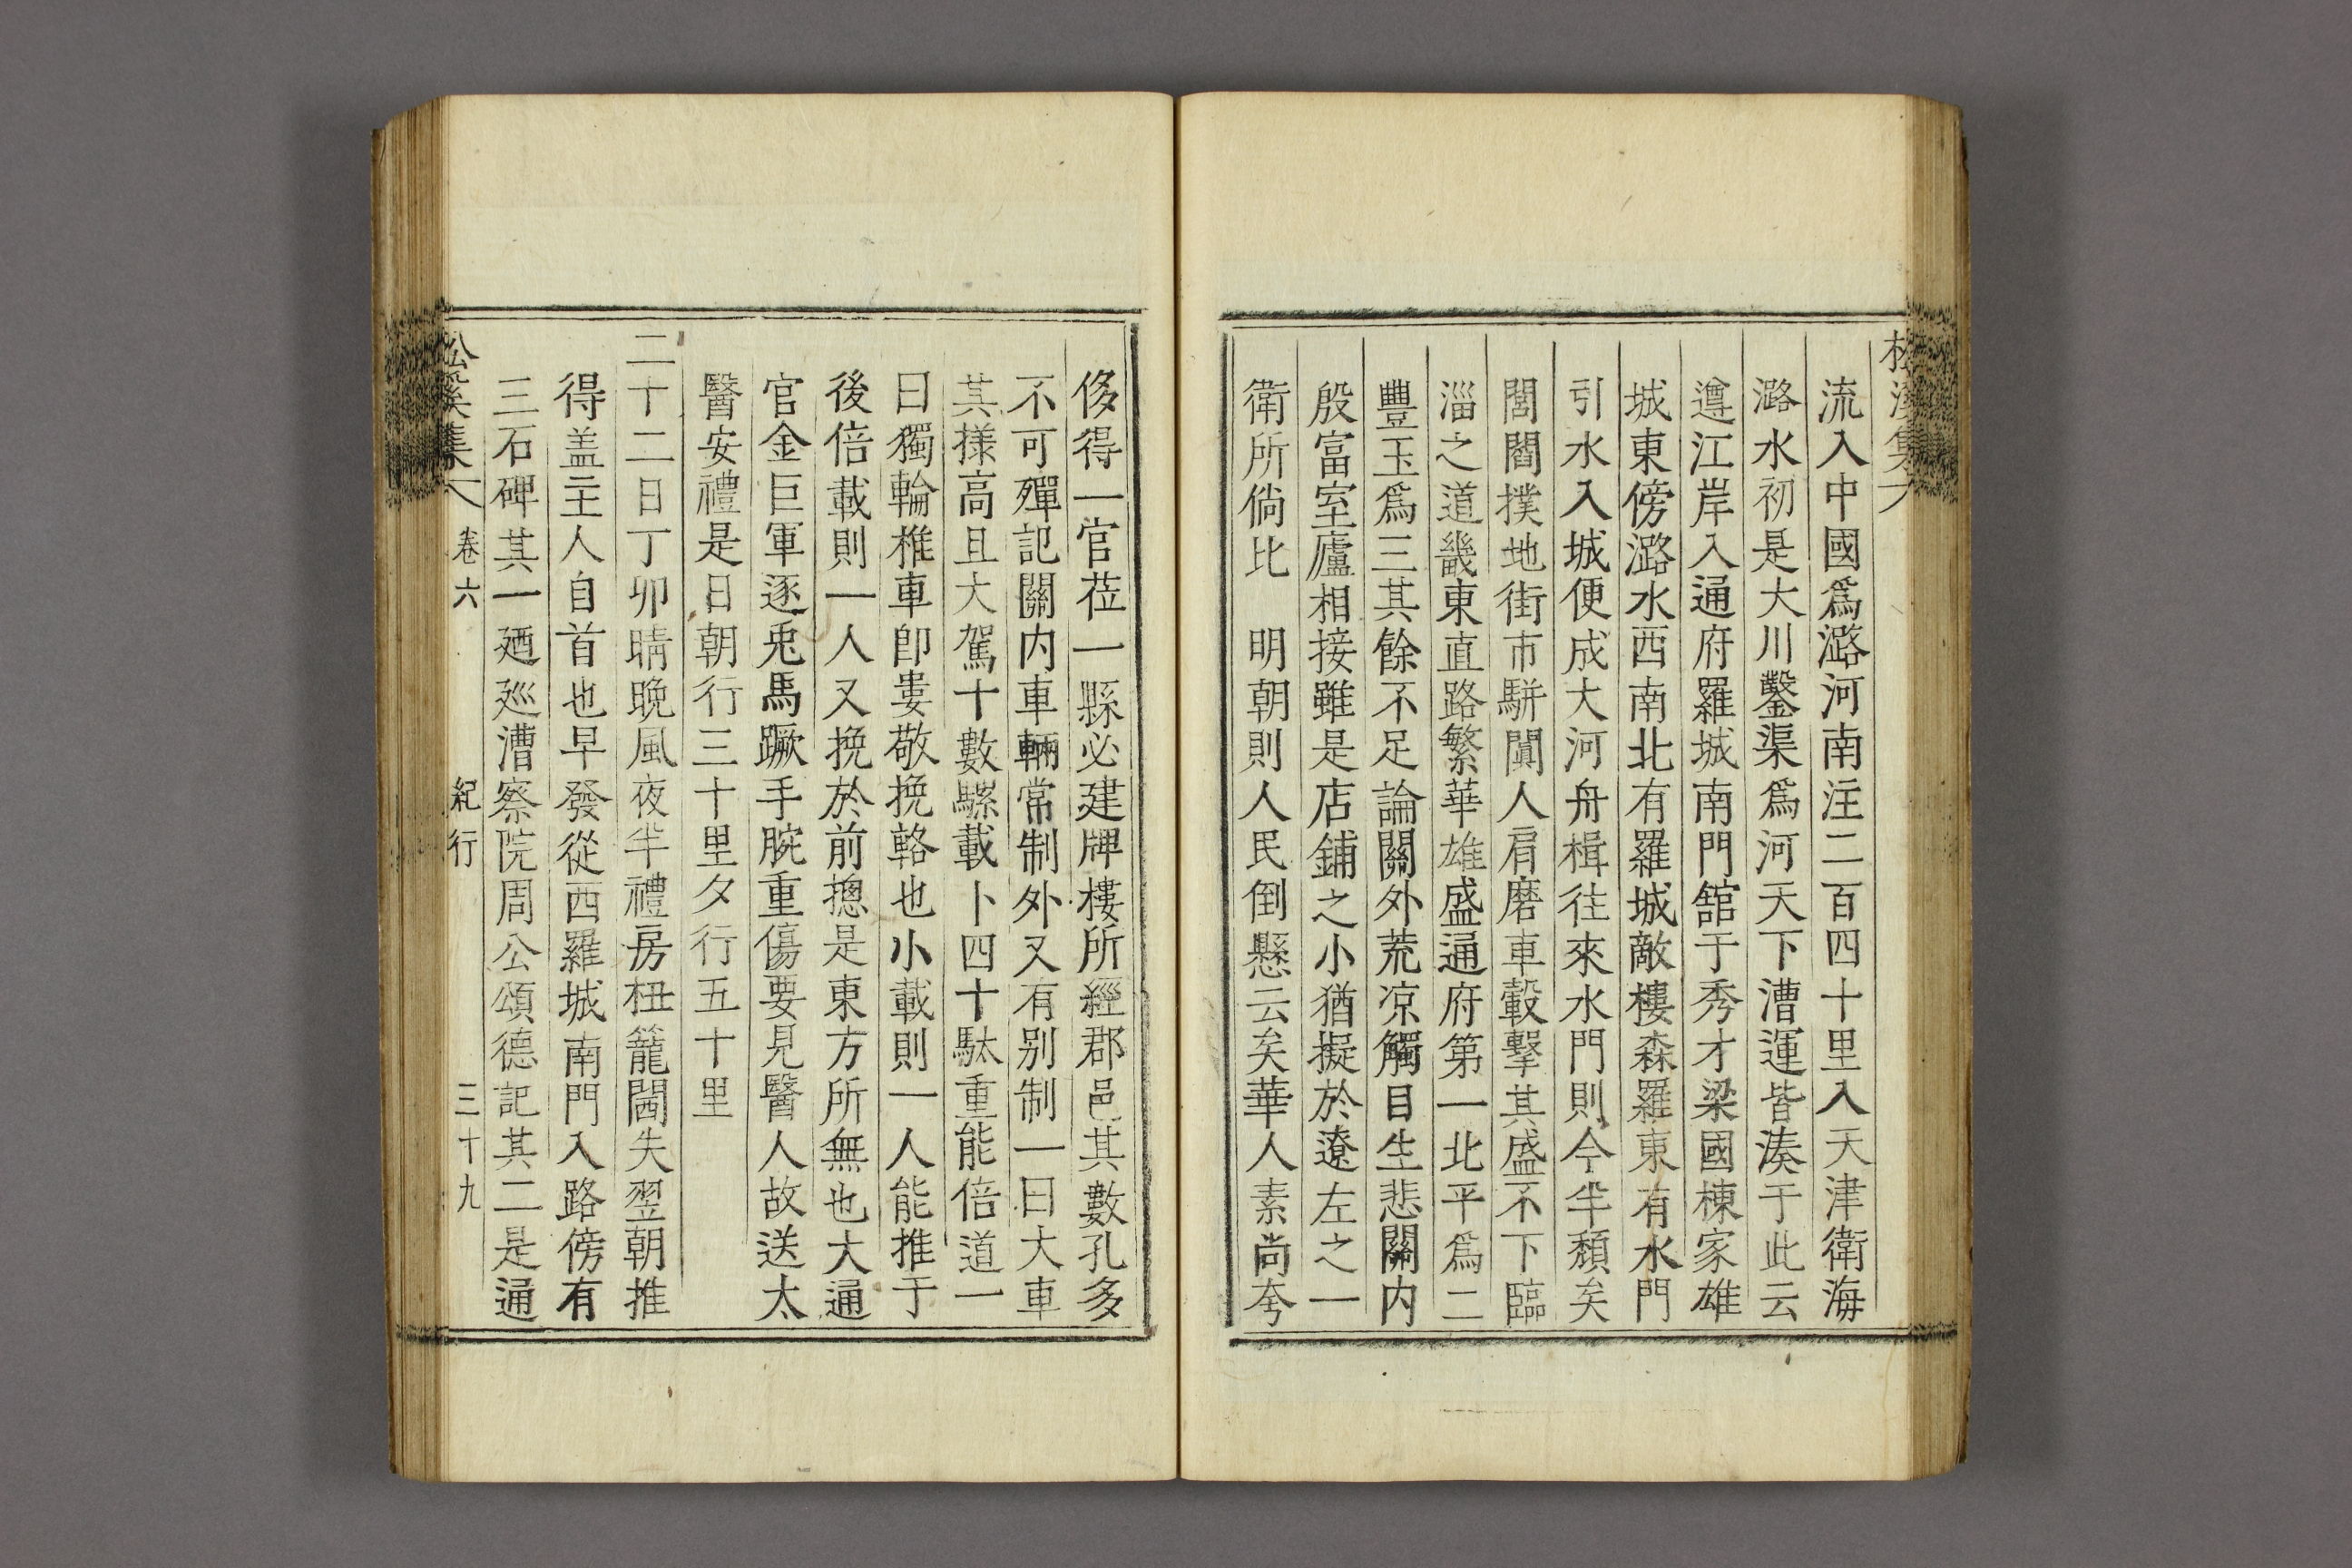 流入中國爲潞河南注二百四十里入天津衛海
潞水初是大川鑿渠爲河天下漕運皆湊于此云
遵江岸入通府羅城南門舘于秀才梁國棟家雄
城東傍潞水西南北有羅城敵樓森羅東有水門
引水入城便成大河舟楫往來水門則今半頹矣
閭閻撲地街市駢闐人肩磨車轂擊其盛不下臨
淄之道畿東直路繁華雄盛通府第一北平爲二
豐玉爲三其餘不足論關外荒凉觸目生悲關内
殷富室廬相接雖是店鋪之小猶擬於遼左之一
衛所倘比 明朝則人民倒懸云矣華人素尚夸
侈得一官莅一縣必建牌樓所經郡邑其數孔多
不可殫記關内車輛常制外又有别制一曰大車
其㨾高且大駕十數騾載卜四十馱重能倍道一
曰獨輪椎車卽婁敬挽輅也小載則一人能推于
後倍載則一人又挽於前摠是東方所無也大通
官金巨軍逐兎馬蹶手腕重傷要見醫人故送太
醫安禮是日朝行三十里夕行五十里
二十二日丁卯晴晚風夜半禮房杻籠閪失翌朝推
得盖主人自首也早發從西羅城南門入路傍有
三石碑其一廼巡漕察院周公頌德記其二是通
松溪集 卷六 紀行 三十九